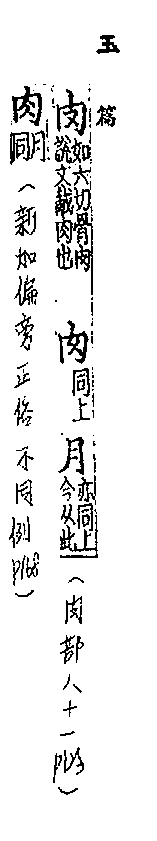 玉篇
肉如六切骨肉說文胾肉也 肉同上 月亦同上今从此（肉部八十一p163）
肉月同（新加偏旁正俗不同例p168）